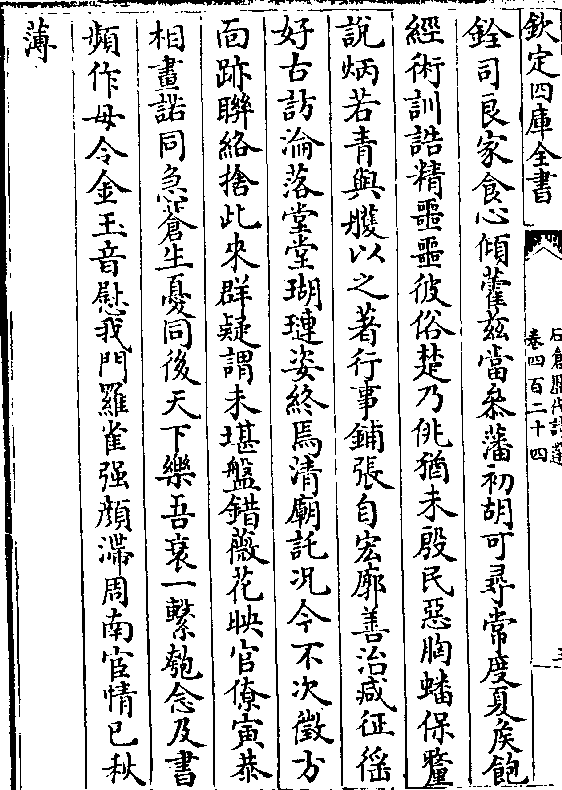 欽定四庫全書
石倉歷代詩選
卷四百二十四
銓司良家食心傾藿茲當叅藩初胡可尋常度夏侯飽
經術訓誥精噩噩彼俗楚乃佻猶未殷民惡胸蟠保釐
說炳若青與雘以之著行事鋪張自宏廓善治咸征徭
好古訪淪落堂堂瑚璉姿終焉清廟託況今不次徵方
面跡聯絡捨此來群疑謂未堪盤錯薇花映官僚寅恭
相畫諾同急蒼生憂同後天下樂吾衰一繫匏念及書
頻作毋令金玉音慰我門羅雀强顔滯周南宦情已秋
薄